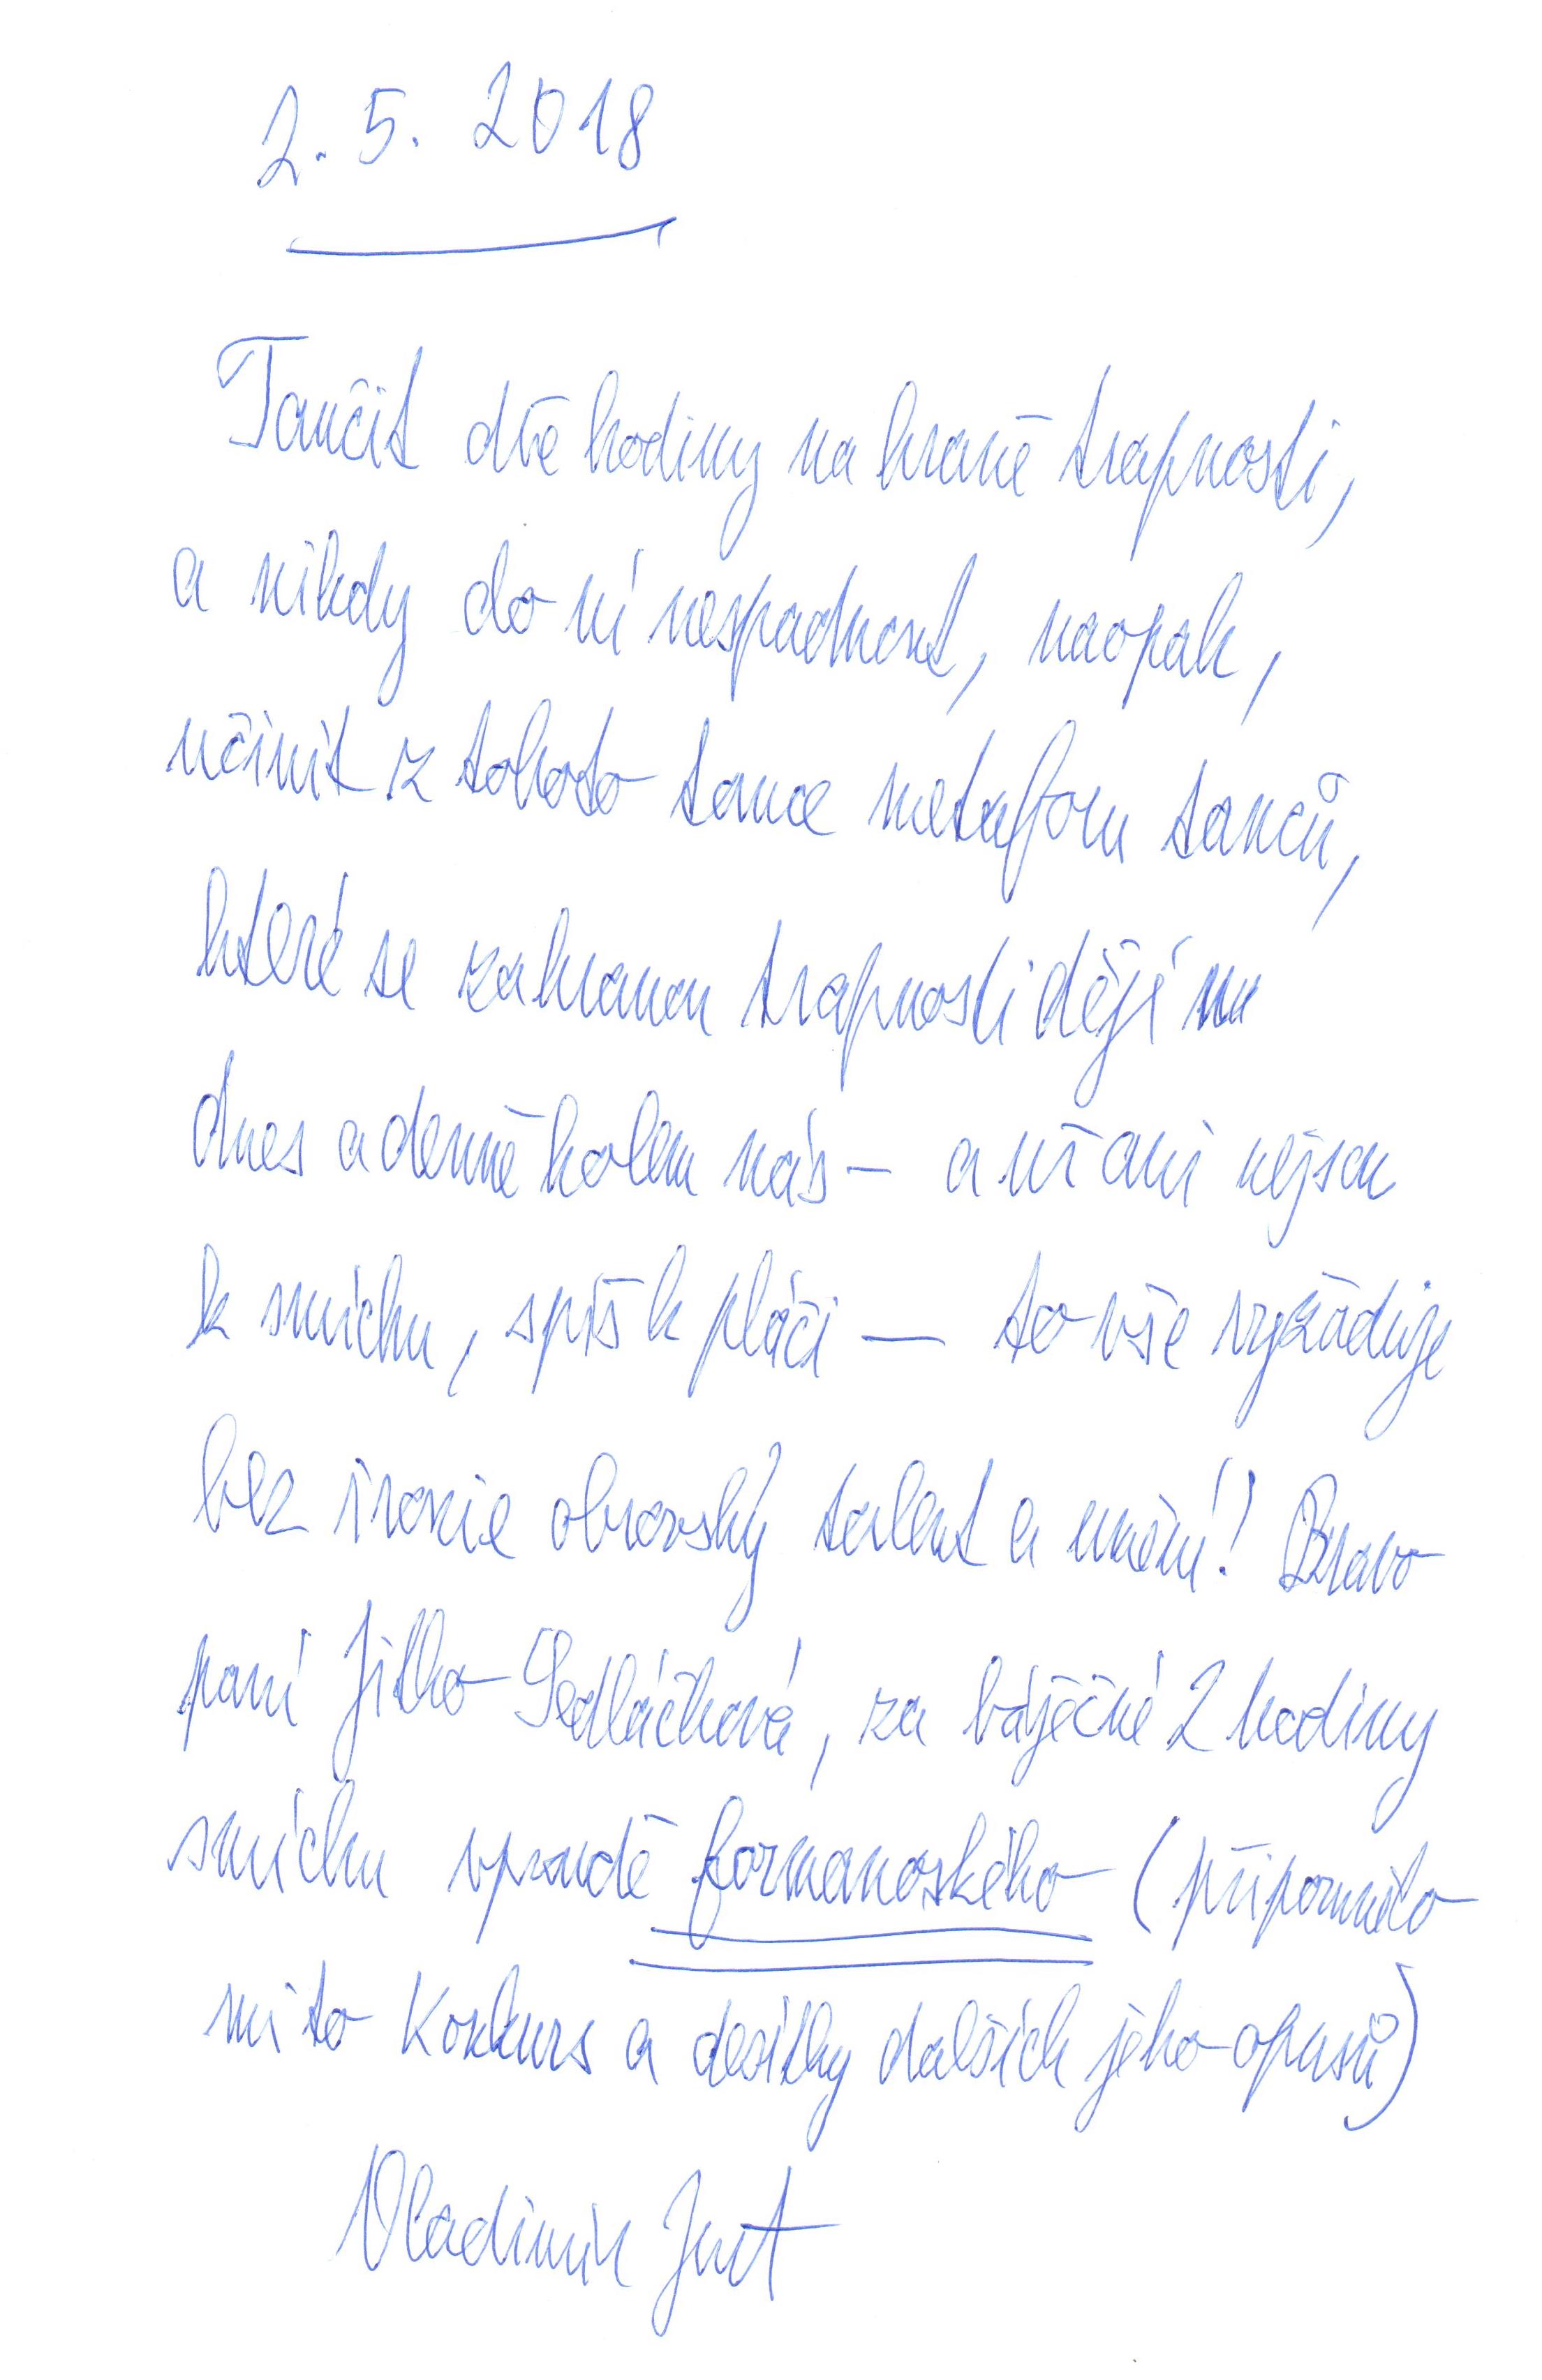 2. 5. 2018
Tančit dvě hodiny na hraně trapnosti,
a nikdy do ní nespadnout, naopak,
učinit z tohoto tance metaforu tanců,
které se za hranou trapnosti dějí
dnes a denně kolem nás – a už ani nejsou
k smíchu, spíš k pláči – to vše vyžaduje
bez ironie obrovský talent a umění! Bravo
paní Jitko Sedláčková, za báječné 2 hodiny
smíchu vpravdě formanovského (připomnělo
mi to Konkurs a desítky dalších jeho opusů)
Vladimír Just